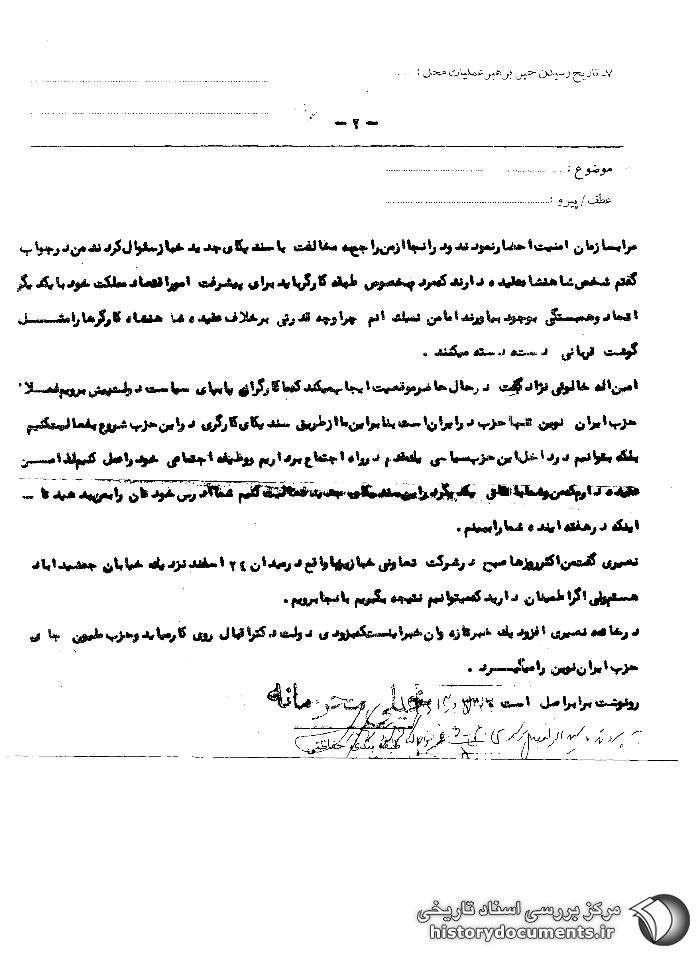 ۷ـ تاریخ رسیدن خبر برهبر عملیات محل :
ـ ۲ ـ
موضوع :
عطف / پیرو :
مرابسازمان امنیت احضار نمودند ودرانجا ازمن راجع به مخالفت با سندیکای جدید خباز سئوال کردند من درجواب
گفتم شخص شاهنشاه عقیده دارند که درخصوص طبقه کارگر باید برای پیشرفت امور اقتصاد مملکت خود با یکدیگر
اتحاد وهمبستگی بوجود بیاورند اما من نمیدانم چرا وچه قدرتی برخلاف عقیده شاهنشاه کارگرها را مثل
گوشت قربانی دسته دسته میکنند .
امین اله خاتونی نژاد گفت درحال حاضر موقعیت ایجاب میکند که ما کارگران پابپای سیاست دولت پیش برویم فعلا
حزب ایران نوین تنها حزب درایران است بنابراین ما از طریق سندیکای کارگری دراین حزب شروع بفعالیت کنیم
بلکه بتوانیم درداخل این حزب سیاسی یکقدم درراه اجتماع برداریم ووظیفه اجتماعی خود را عمل کنیم لذا من
عقیده دارم که من وشما باتفاق یکدیگر دراین سندیکای جدید فعالیت کنیم شما آدرس خودتان را بمن بدهید تا ...
اینکه درهفته آینده شما را ببینم .
نصیری گفت من اکثر روزها صبح درشرکت تعاونی خبازیها واقع درمیدان ۲٤ اسفند نزدیک خیابان جمشیدآباد
هستم ولی اگر اطمینان دارید که میتوانیم نتیجه بگیریم بآنجا برویم .
درخاتمه نصیری افزود یک خبر تازه وآن خبر اینست که بزودی دولت دکتر اقبال روی کار میاید وحزب ملیون جای
حزب ایران نوین را میگیرد .
رونوشت برابر اصل است
خیلی محرمانه
طبقه بندی حفاظتی
مرکز بررسی اسناد تاریخی
historydocuments.ir